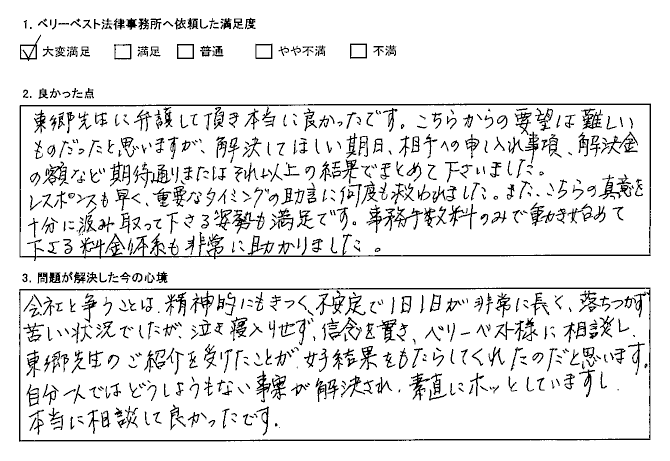 1. ベリーベスト法律事務所へ依頼した満足度
大変満足 満足 普通 やや不満 不満
2. 良かった点
東郷先生に弁護して頂き本当に良かったです。こちらからの要望は難しい
ものだったと思いますが、解決してほしい期日、相手への申し入れ事項、解決金
の額など期待通りまたはそれ以上の結果でまとめて下さいました。
レスポンスも早く、重要なタイミングの助言に何度も救われました。また、こちらの真意を
十分に汲み取って下さる姿勢も満足です。事務手数料のみで動き始めて
下さる料金体系も非常に助かりました。
3. 問題が解決した今の心境
会社と争うことは、精神的にもきつく、不安定で1日1日が非常に長く、落ちつかず
苦しい状況でしたが、泣き寝入りせず、信念を貫き、ベリーベスト様に相談し、
東郷先生のご紹介を受けたことが、好結果をもたらしてくれたのだと思います。
自分一人ではどうしようもない事案が解決され、素直にホッとしていますし、
本当に相談して良かったです。